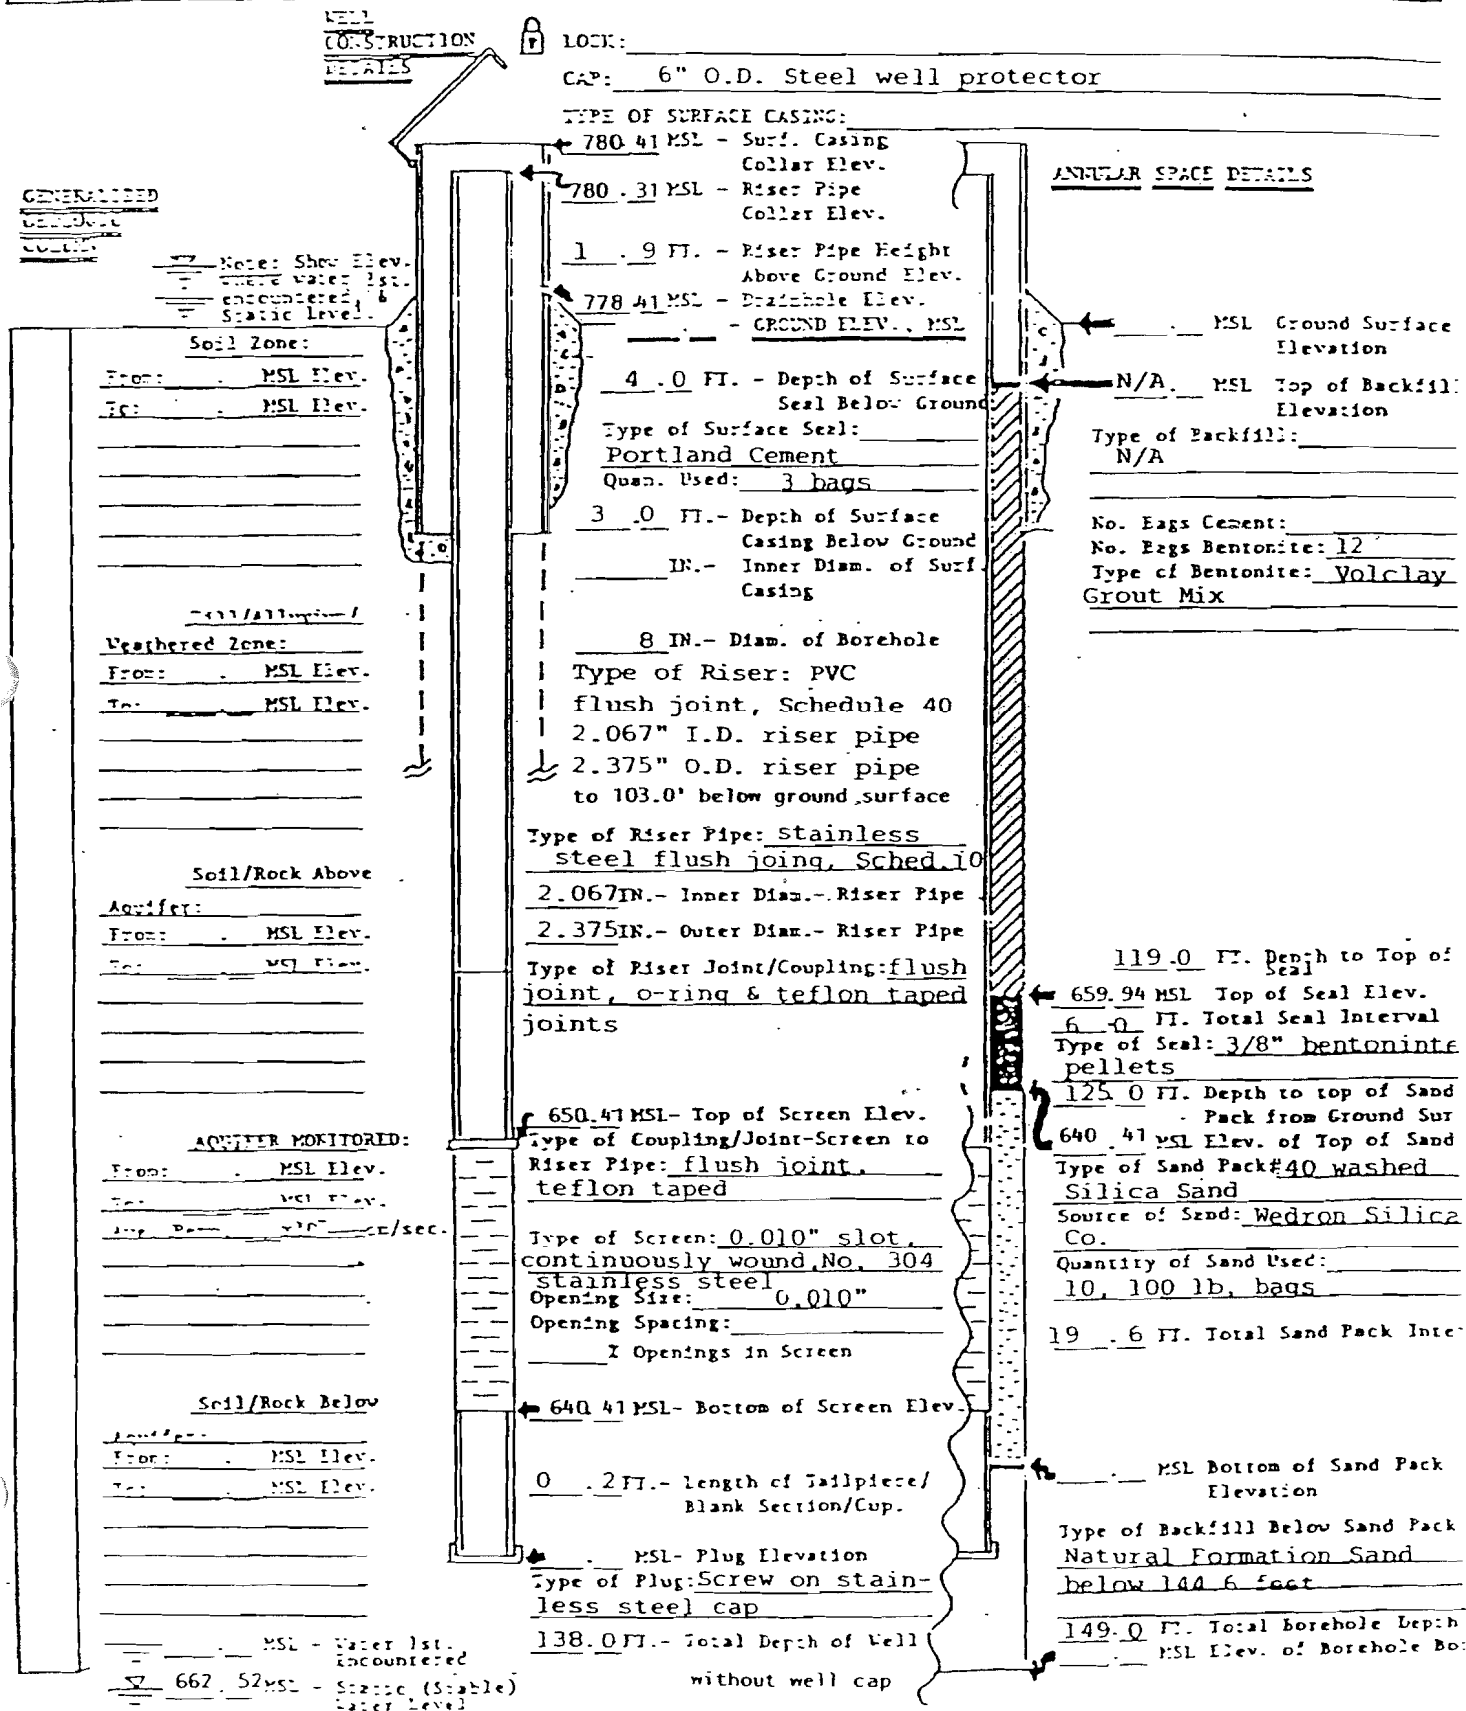 WELL
CONSTRUCTION
DETAILS
LOCK:
CAP: 6" O.D. Steel well protector
TYPE OF SURFACE CASING:
780.41 MSL - Surf. Casing
Collar Elev.
780.31 MSL - Riser Pipe
Collar Elev.
1.9 FT. - Riser Pipe Height
Above Ground Elev.
778.41 MSL - Drainhole Elev.
. - GROUND ELEV., MSL
4.0 FT. - Depth of Surface
Seal Below Ground
Type of Surface Seal:
Portland Cement
Quan. Used: 3 bags
3.0 FT.- Depth of Surface
Casing Below Ground
IN.- Inner Diam. of Surf.
Casing
8 IN.- Diam. of Borehole
Type of Riser: PVC
flush joint, Schedule 40
2.067" I.D. riser pipe
2.375" O.D. riser pipe
to 103.0' below ground surface
Type of Riser Pipe: stainless
steel flush joing, Sched.
2.067 IN.- Inner Diam.- Riser Pipe
2.375 IN.- Outer Diam.- Riser Pipe
Type of Riser Joint/Coupling: flush
joint, o-ring & teflon taped
joints
650.41 MSL- Top of Screen Elev.
Type of Coupling/Joint-Screen to
Riser Pipe: flush joint,
teflon taped
Type of Screen: 0.010" slot,
continuously wound, No. 304
stainless steel
Opening Size: 0.010"
Opening Spacing:
% Openings in Screen
640.41 MSL- Bottom of Screen Elev.
0.2 FT.- Length of Tailpiece/
Blank Section/Cup.
. MSL- Plug Elevation
Type of Plug: Screw on stain-
less steel cap
138.0 FT.- Total Depth of Well
without well cap
GENERALIZED
GEOLOGIC
COLUMN
Note: Show Elev.
where water 1st.
encountered, &
Static Level.
Soil Zone:
From: . MSL Elev.
To: . MSL Elev.
Till/Alluvium/
Weathered Zone:
From: . MSL Elev.
To: . MSL Elev.
Soil/Rock Above
Aquifer:
From: . MSL Elev.
To: . MSL Elev.
AQUIFER MONITORED:
From: . MSL Elev.
To: . MSL Elev.
cm/sec.
Soil/Rock Below
Aquifer:
From: . MSL Elev.
To: . MSL Elev.
. MSL - Water 1st.
Encountered
662.52 MSL - Static (Stable)
Water Level
ANNULAR SPACE DETAILS
. MSL Ground Surface
Elevation
N/A. MSL Top of Backfill
Elevation
Type of Backfill:
N/A
No. Bags Cement:
No. Bags Bentonite: 12
Type of Bentonite: Volclay
Grout Mix
119.0 FT. Depth to Top of
Seal
659.94 MSL Top of Seal Elev.
6.0 FT. Total Seal Interval
Type of Seal: 3/8" bentoninte
pellets
125.0 FT. Depth to top of Sand
Pack from Ground Sur
640.41 MSL Elev. of Top of Sand
Type of Sand Pack #40 washed
Silica Sand
Source of Sand: Wedron Silica
Co.
Quantity of Sand Used:
10, 100 lb, bags
19.6 FT. Total Sand Pack Inte
. MSL Bottom of Sand Pack
Elevation
Type of Backfill Below Sand Pack
Natural Formation Sand
below 144.6 feet
149.0 FT. Total Borehole Depth
. MSL Elev. of Borehole Bo